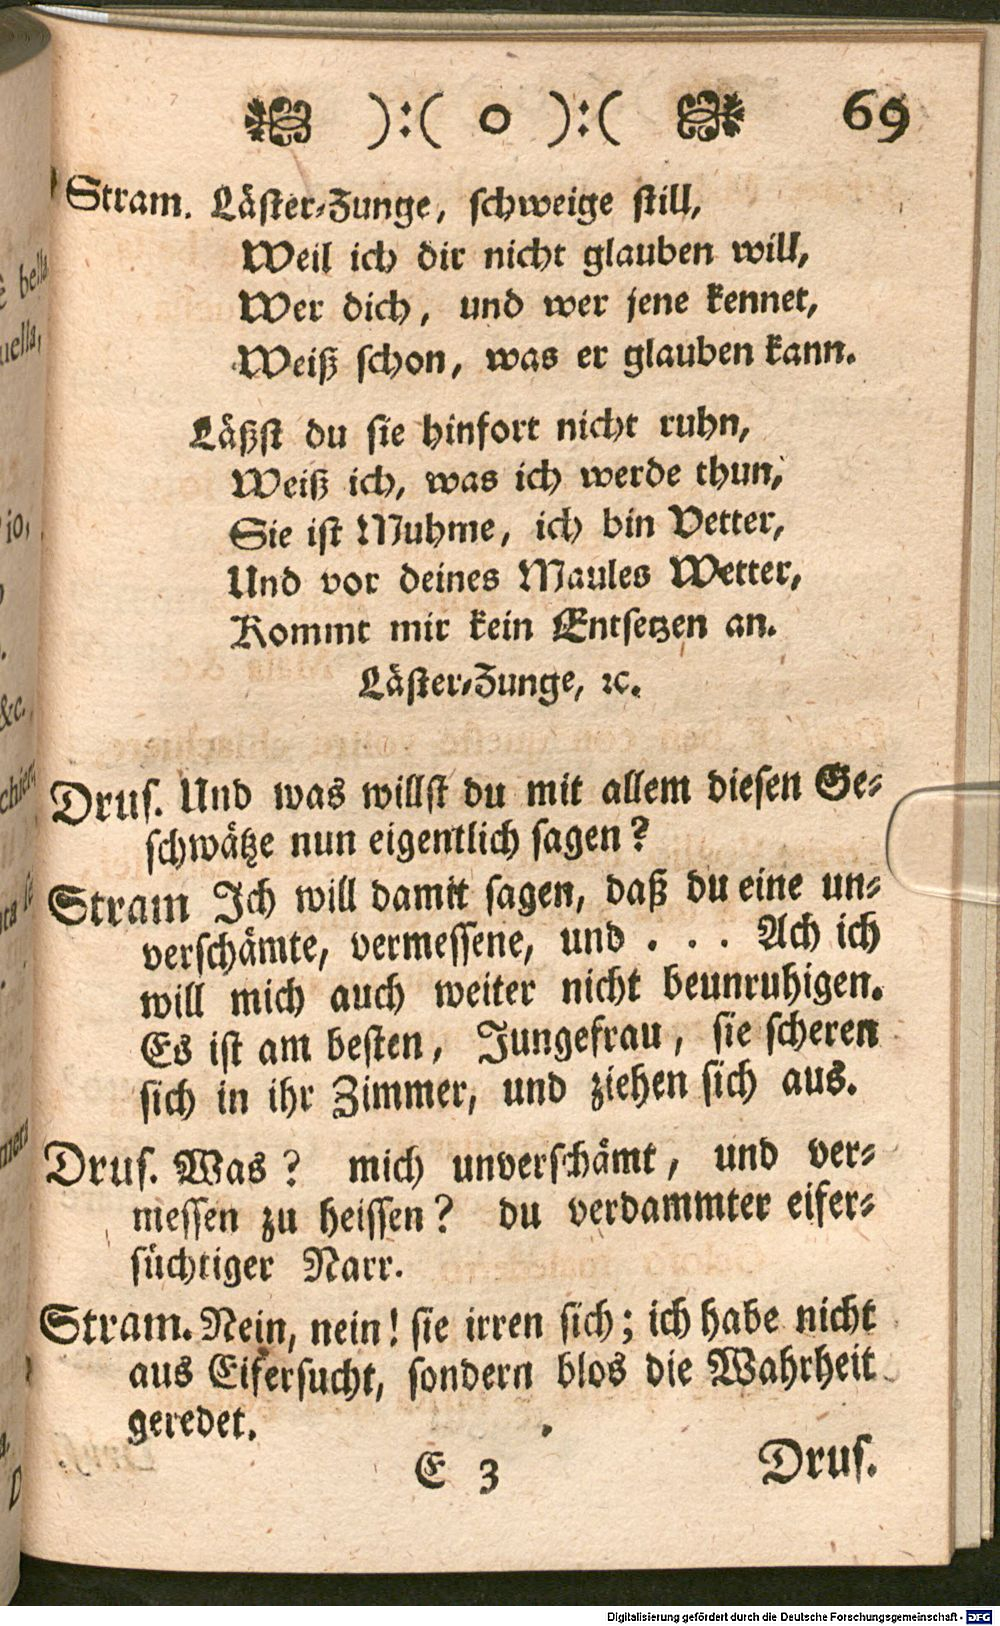 ):( o ):( 69
Stram. Läster-Zunge, schweige still,
Weil ich dir nicht glauben will,
Wer dich, und wer jene kennet,
Weiß schon, was er glauben kann.
Läßst du sie hinfort nicht ruhn,
Weiß ich, was ich werde thun,
Sie ist Muhme, ich bin Vetter,
Und vor deines Maules Wetter,
Kommt mir kein Entsetzen an.
Läster-Zunge, ꝛc.
Drus. Und was willst du mit allem diesen Ge-
schwätze nun eigentlich sagen?
Stram Ich will damit sagen, daß du eine un-
verschämte, vermessene, und . . . Ach ich
will mich auch weiter nicht beunruhigen.
Es ist am besten, Jungefrau, sie scheren
sich in ihr Zimmer, und ziehen sich aus.
Drus. Was? mich unverschämt, und ver-
messen zu heissen? du verdammter eifer-
süchtiger Narr.
Stram. Nein, nein! sie irren sich; ich habe nicht
aus Eifersucht, sondern blos die Wahrheit
geredet.
E 3 Drus.
Digitalisierung gefördert durch die Deutsche Forschungsgemeinschaft - DFG